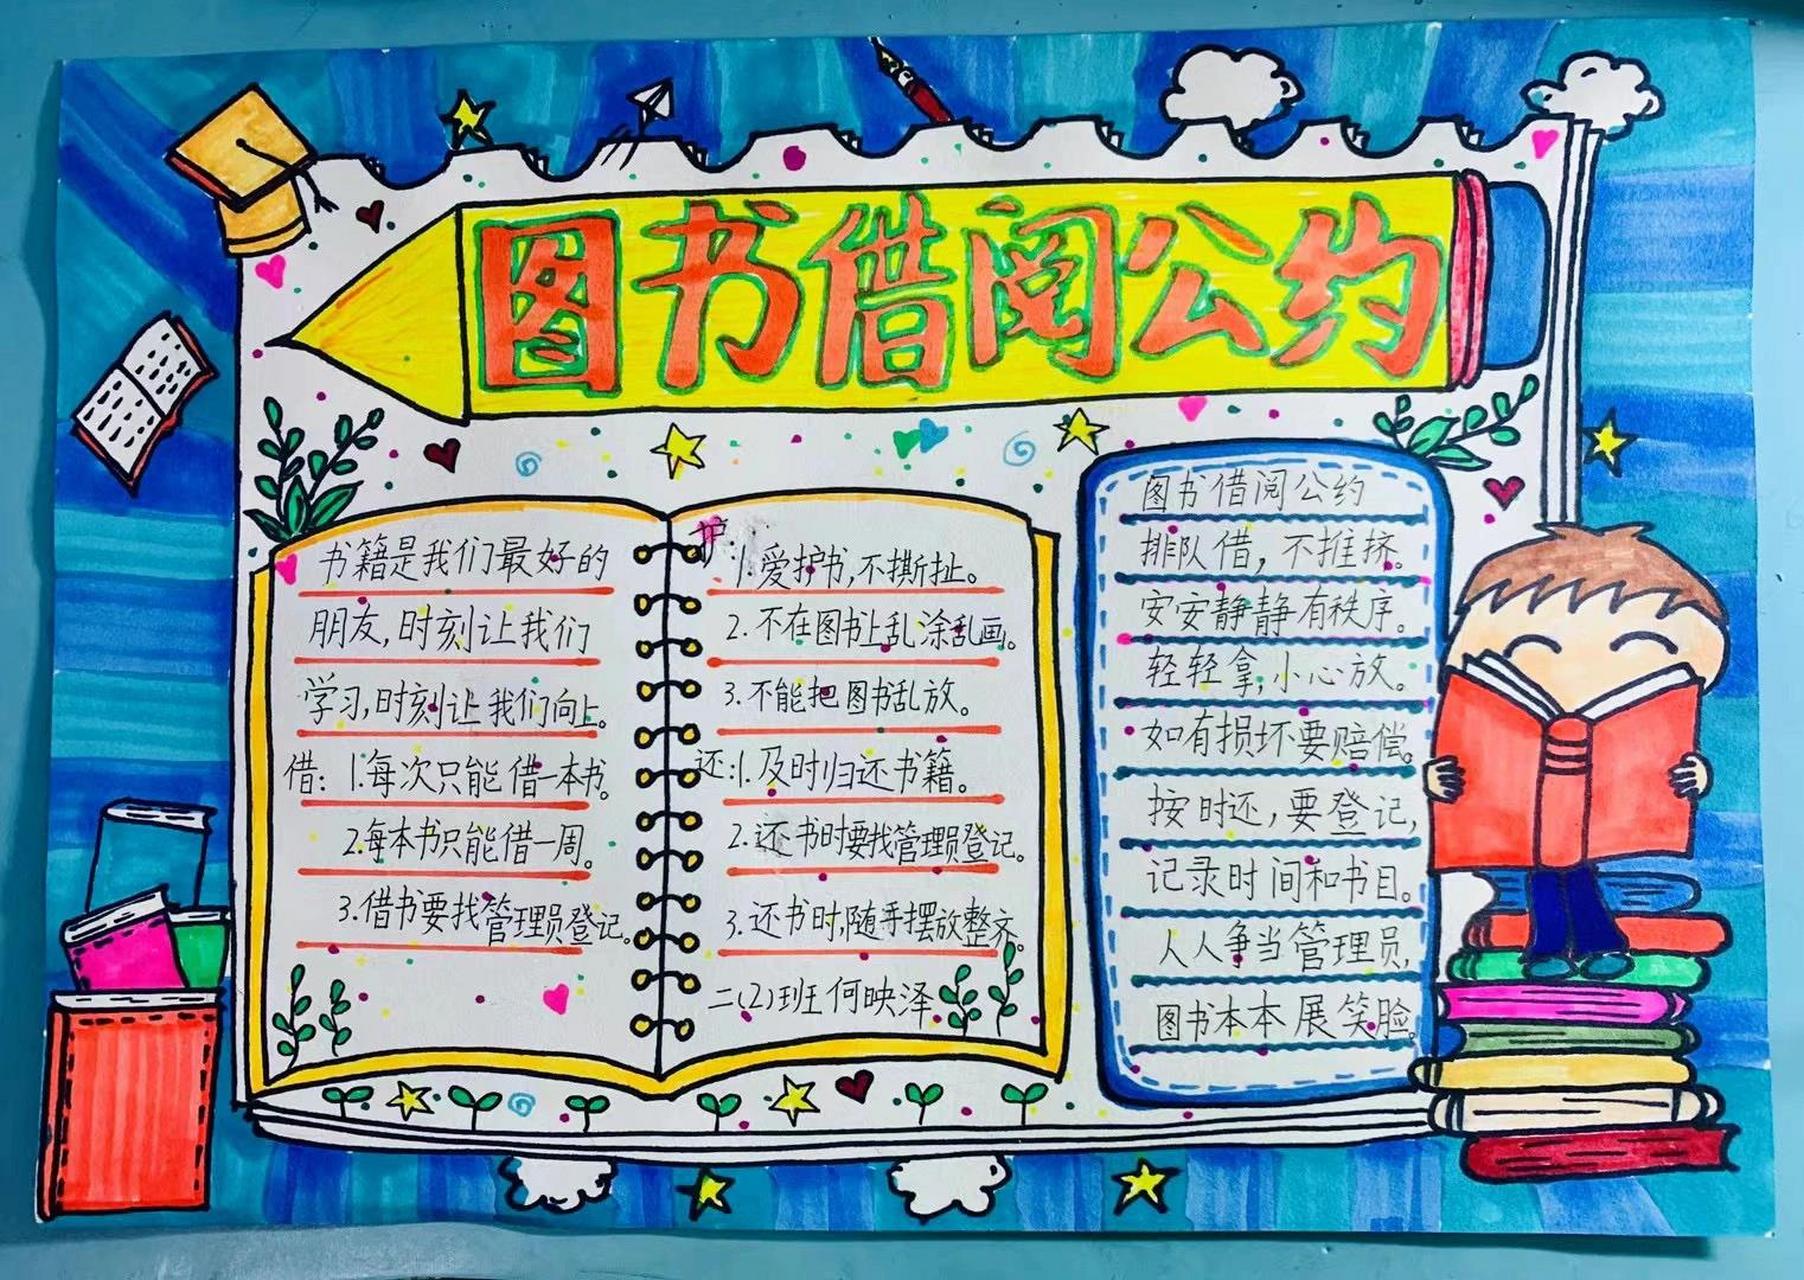 图书借阅公约
书籍是我们最好的
朋友,时刻让我们
学习,时刻让我们向上。
借：1.每次只能借一本书。
2.每本书只能借一周。
3.借书要找管理员登记。
护：1.爱护书,不撕扯。
2.不在图书上乱涂乱画。
3.不能把图书乱放。
还：1.及时归还书籍。
2.还书时要找管理员登记。
3.还书时,随手摆放整齐。
二(2)班何映泽
图书借阅公约
排队借，不推挤。
安安静静有秩序。
轻轻拿,小心放。
如有损坏要赔偿。
按时还,要登记,
记录时间和书目。
人人争当管理员,
图书本本展笑脸。